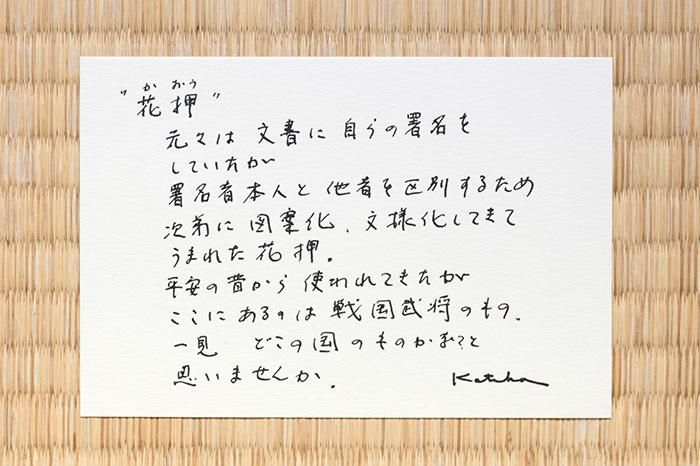 かおう
"花押"
元々は 文書に 自らの署名を
していたが
署名者本人と 他者を区別するため
次第に 図案化、文様化してきて
うまれた 花押。
平安の昔から 使われてきたが
ここに あるのは 戦国武将のもの、
一見 どこの国のものかな?と
思いませんか。